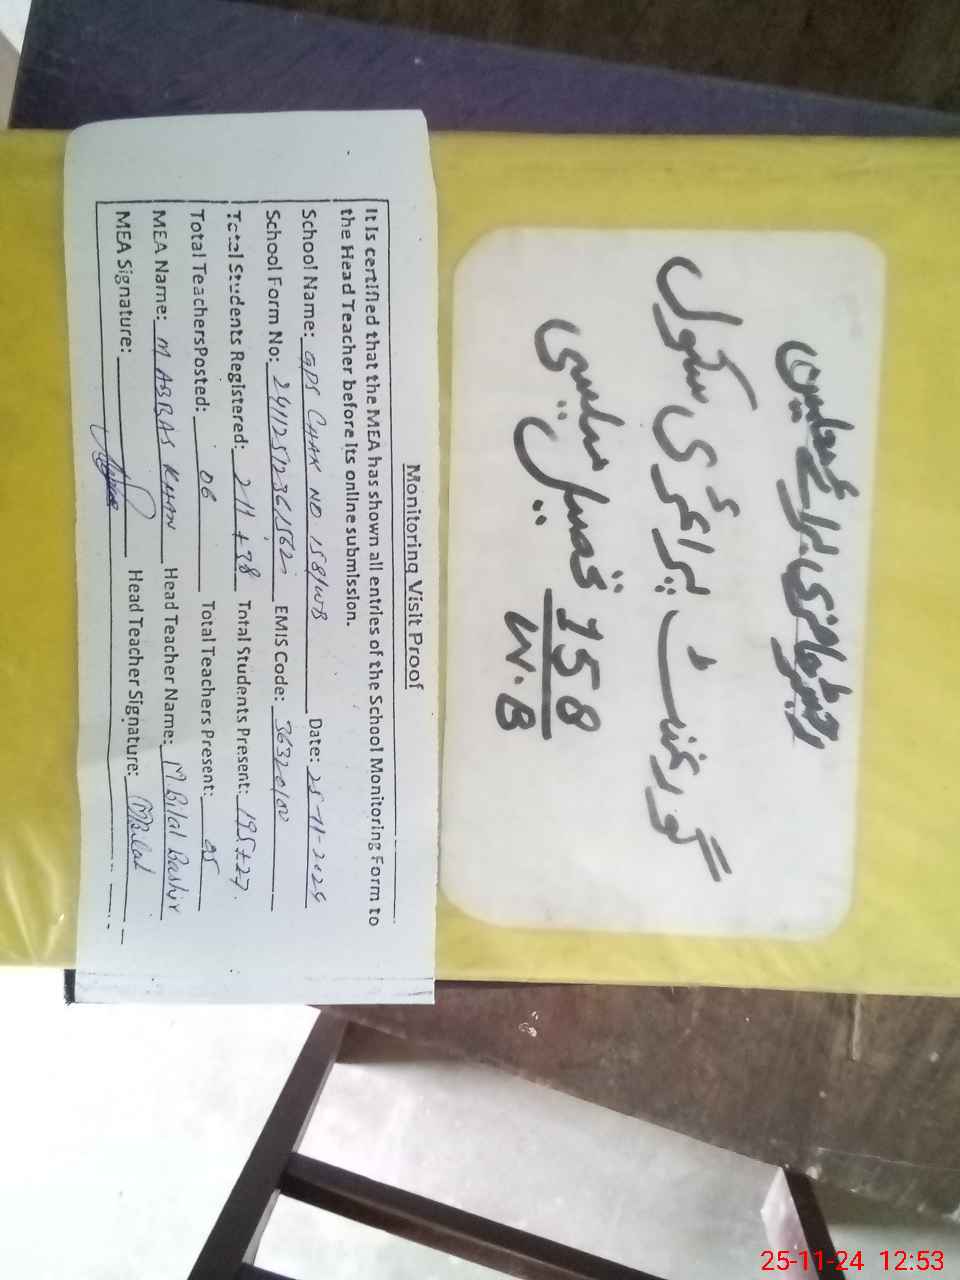 رجسٹر حاضری برائے معلمین
گورنمنٹ پرائمری سکول
158
W.B
تحصیل میلسی
Monitoring Visit Proof
It is certified that the MEA has shown all entries of the School Monitoring Form to
the Head Teacher before its online submission.
School Name: GPS CHAK NO 158/WB Date: 25-11-2024
School Form No: EMIS Code: 36320100
Total Students Registered: 211 + 38 Total Students Present: 195+27
Total TeachersPosted: 06 Total Teachers Present: 05
MEA Name: M ABBAS KHAN Head Teacher Name: M Bilal Bashir
MEA Signature: Head Teacher Signature: MBilal
25-11-24 12:53